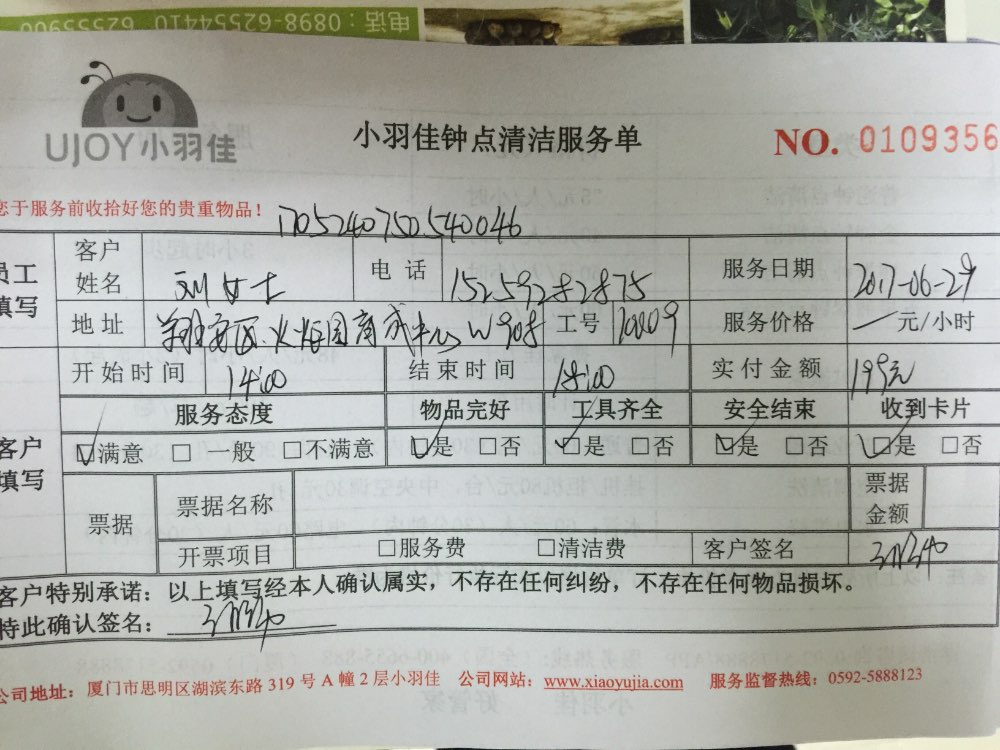 电话：0898-62554410 62555900
UJOY小羽佳
小羽佳钟点清洁服务单
NO. 0109356
您于服务前收拾好您的贵重物品！
1705240750540046
员工填写
客户姓名 刘女士 电话 15259282875 服务日期 2017-06-29
地址 翔安区.火炬园商成中心W908 工号 120009 服务价格 一元/小时
开始时间 14:00 结束时间 18:00 实付金额 195元
客户填写
服务态度 物品完好 工具齐全 安全结束 收到卡片
☑满意 □一般 □不满意 ☑是 □否 ☑是 □否 ☑是 □否 ☑是 □否
票据 票据名称 票据金额
开票项目 □服务费 □清洁费 客户签名
客户特别承诺：以上填写经本人确认属实，不存在任何纠纷，不存在任何物品损坏。
特此确认签名：
公司地址：厦门市思明区湖滨东路319号A幢2层小羽佳 公司网站：www.xiaoyujia.com 服务监督热线：0592-5888123